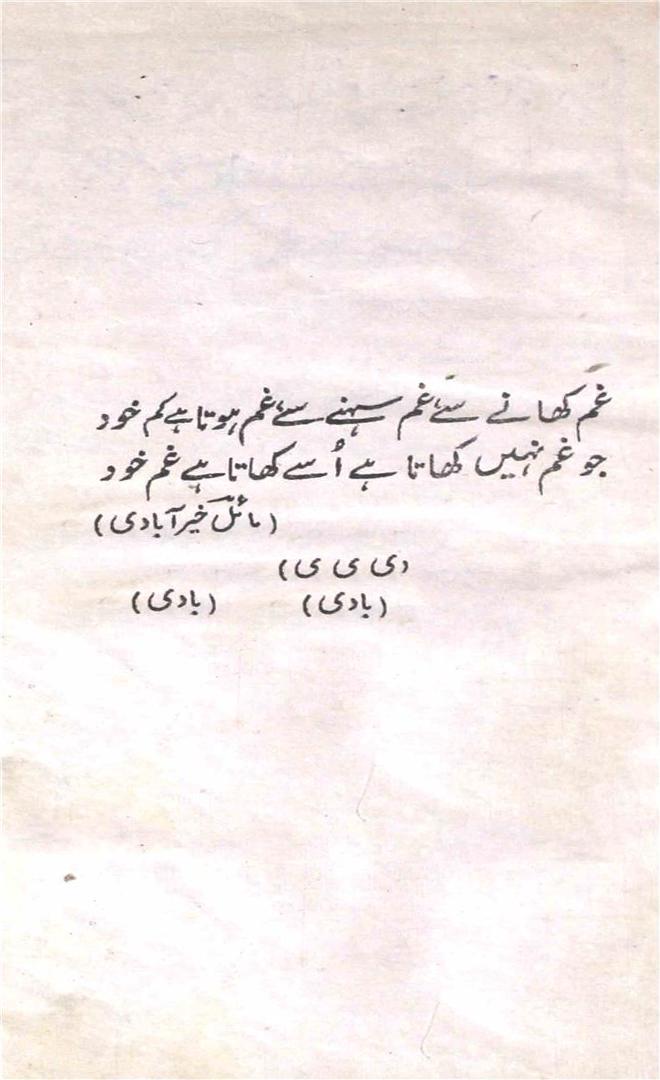 غم کھانے سے غم سہنے سے غم ہوتا ہے کم خود
جو غم نہیں کھاتا ہے اُسے کھاتا ہے غم خود
(مائل خیرآبادی)
(ی ی دی
(بادی) (بادی)